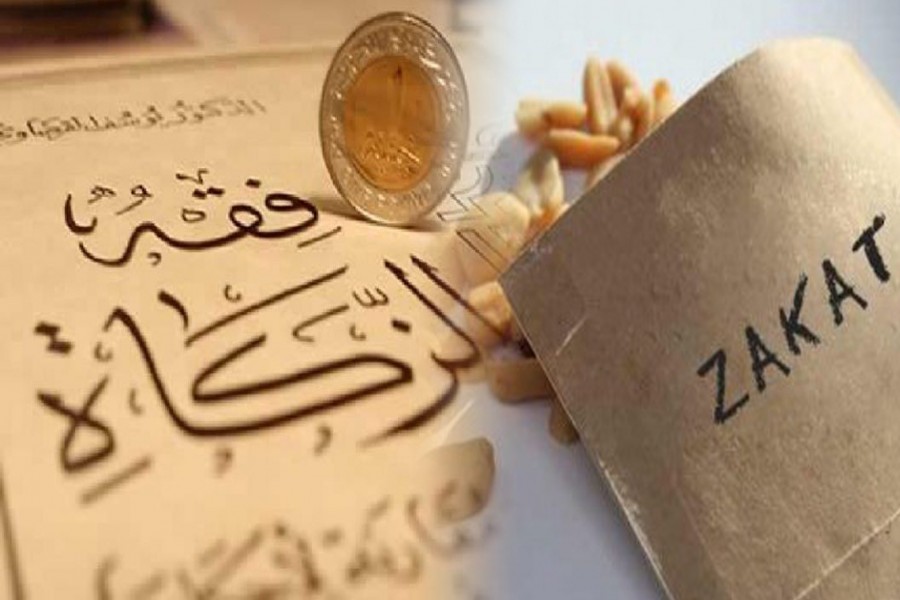 الدكتور يوسف القرضاوي
فِقْهُ
الزَّكَاةِ
ZAKAT